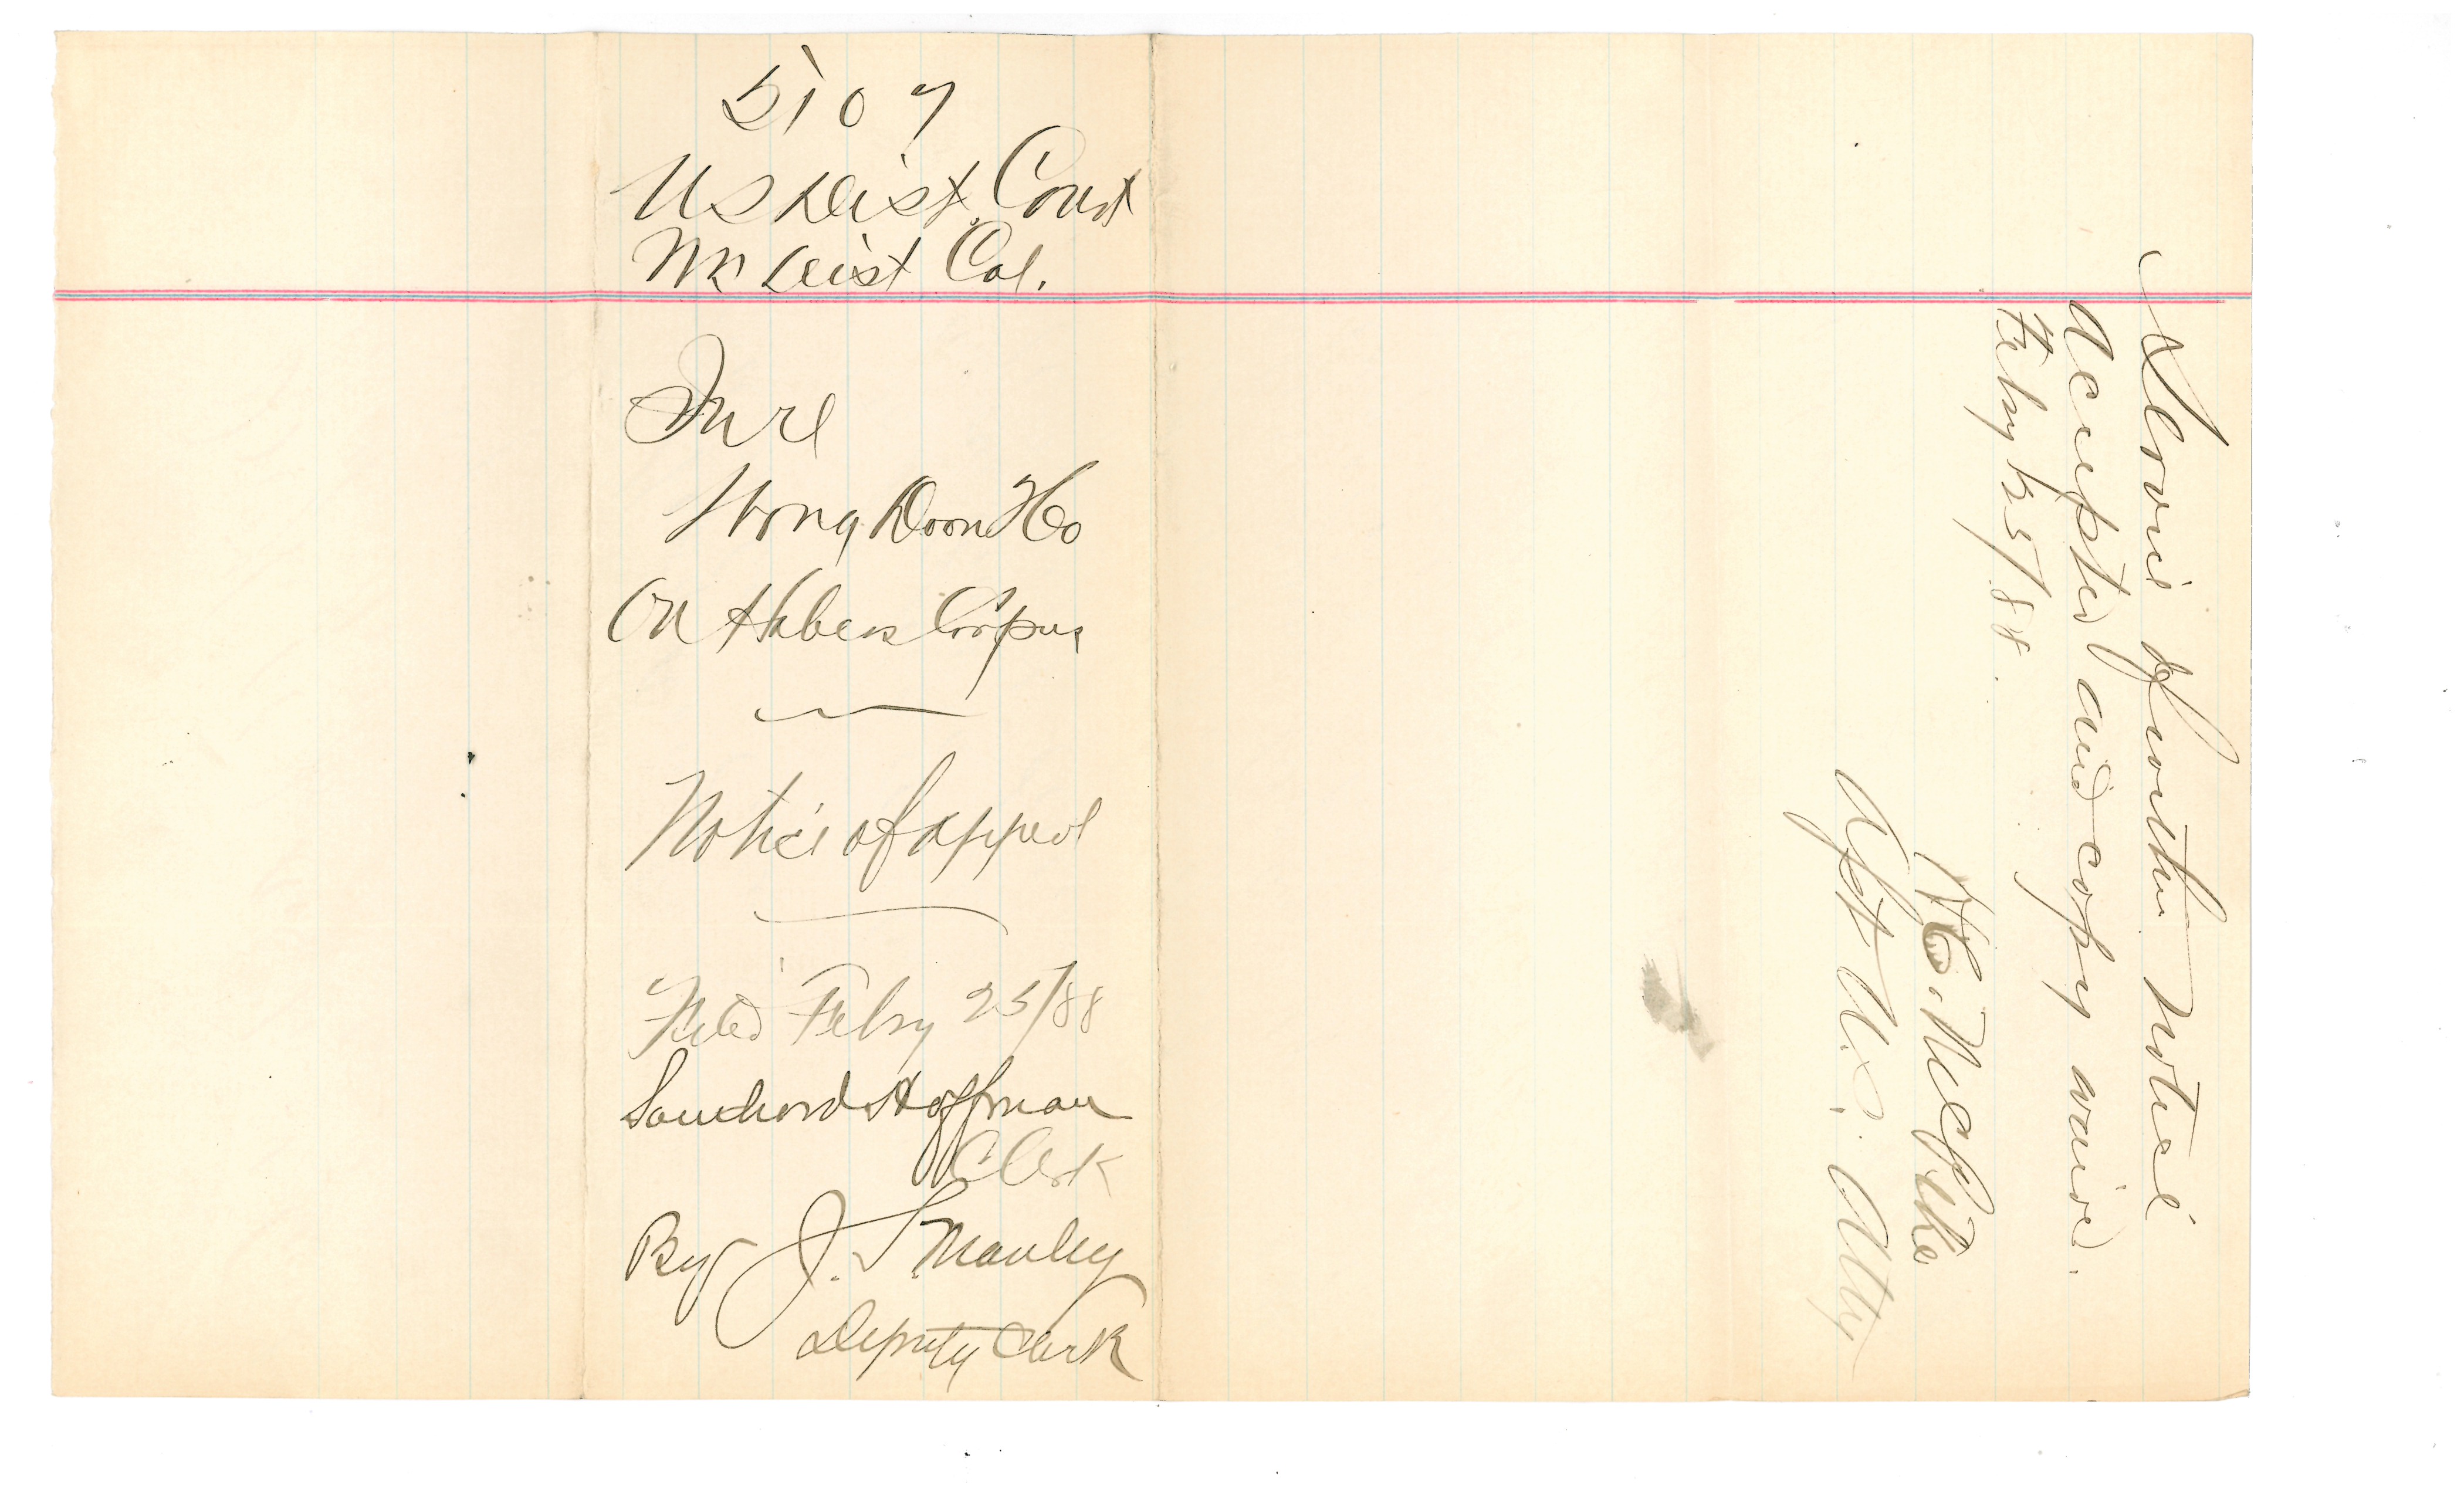 5107
US Dist. Court
Nn Dist Cal.
In re
Wong Doon Ho
On Habeas Corpus
Notice of appeal
Filed Feby 25/88
Southard Hoffman
Clerk
By J. S. Manley
Deputy Clerk
Service of within notice
accepted and copy waived.
Feby 25/88.
Asst U.S. Atty